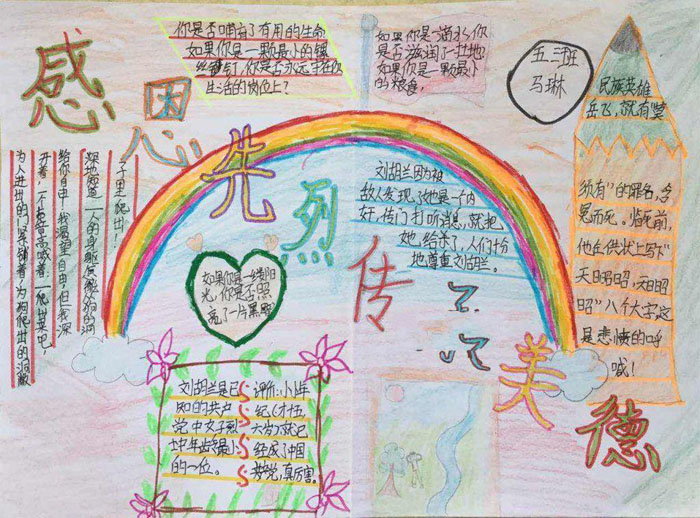 感恩先烈
传美德
你是否哺育了有用的生命
如果你是一颗最小的螺
丝钉,你是否永远守在你
生活的岗位上?
如果你是一滴水,你
是否滋润了一寸土地
如果你是一颗最小
的粮食,
五三班
马琳
民族英雄
岳飞,就有"莫
须有"的罪名,含
冤而死。临死前,
他在供状上写下"
天日昭昭,天日昭
昭"八个大字,这
是悲愤的呼
喊!
刘胡兰因为被
敌人发现了她是一个内
奸,传门打听消息,就把
她给杀了,人们十份
地尊重刘胡兰。
如果你是一缕阳
光,你是否照
亮了一片黑暗
为人进出的门紧锁着,为狗爬出的洞敞
开着,一个声音高喊着,爬出来吧,
给你自由!我渴望自由,但我深
深地知道——人的身躯怎能从狗的洞
子里爬出!
刘胡兰是已
知的共产
党中女子烈
士中年龄最小
的一位。
评价:小小年
纪(才十五、
六岁)就已
经成了中国
共党,真厉害。